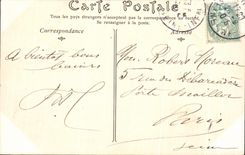 Carte Postale
Tous les pays étrangers n'acceptent pas la correspondance au recto.
Se renseigner à la poste.
Correspondance
Adresse
A bientôt bons
baisers
Mon. Robert Moreau
5 rue du
Porte Maillot
Paris
Seine